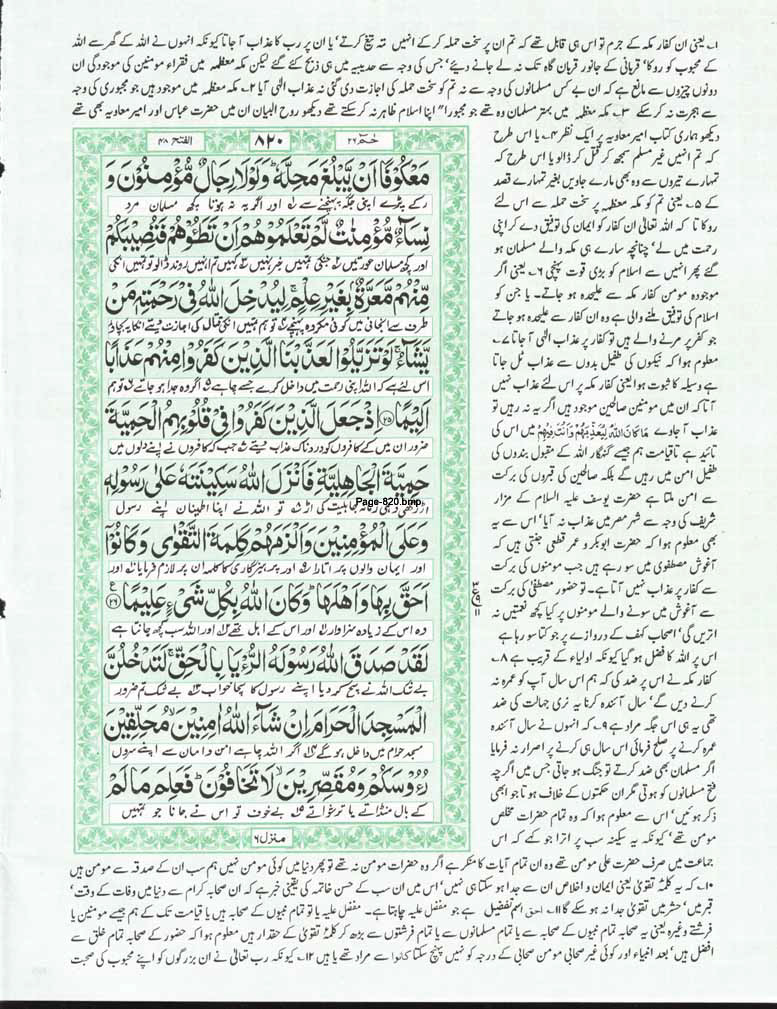 ۱۔ یعنی ان کفار مکہ کے جرم تو اس ہی قابل تھے کہ تم ان پر سخت حملہ کر کے انہیں تہ تیغ کرتے' یا ان پر رب کا عذاب آ جاتا کیونکہ انہوں نے اللہ کے گھر سے اللہ
کے محبوب کو روکا' قربانی کے جانور قربان گاہ تک نہ لے جانے دیئے' جس کی وجہ سے حدیبیہ میں ہی ذبح کئے گئے لیکن مکہ معظمہ میں فقراء مومنین کی موجودگی ان
دونوں چیزوں سے مانع ہے کہ ان بے کس مسلمانوں کی وجہ سے نہ تم کو سخت حملہ کی اجازت دی گئی نہ عذاب الٰہی آیا ۲۔ مکہ معظمہ میں موجود ہیں جو مجبوری کی وجہ
سے ہجرت نہ کر سکے ۳۔ مکہ معظمہ میں بہتر مسلمان وہ تھے جو مجبورا" اپنا اسلام ظاہر نہ کر سکتے تھے دیکھو روح البیان ان میں حضرت عباس اور امیر معاویہ بھی تھے
دیکھو ہماری کتاب امیر معاویہ پر ایک نظر ۴۔ یا اس طرح
کہ تم انہیں غیر مسلم سمجھ کر قتل کر ڈالو یا اس طرح کہ
تمہارے تیروں سے وہ بھی مارے جاویں بغیر تمہارے قصد
کے ۵۔ یعنی تم کو مکہ معظمہ پر سخت حملہ سے اس لئے
روکا تا کہ اللہ تعالٰی ان کفار کو ایمان کی توفیق دے کر اپنی
رحمت میں لے' چنانچہ سارے ہی مکہ والے مسلمان ہو
گئے پھر انہیں سے اسلام کو بڑی قوت پہنچی ۶۔ یعنی اگر
موجودہ مومن کفار مکہ سے علیحدہ ہو جاتے۔ یا جن کو
اسلام کی توفیق ملنے والی ہے وہ ان کفار سے علیحدہ ہو جاتے
جو کفر پر مرنے والے ہیں تو کفار پر عذاب الٰہی آ جاتا ۷۔
معلوم ہوا کہ نیکوں کی طفیل بدوں سے عذاب ٹل جاتا
ہے وسیلہ کا ثبوت ہوا یعنی کفار مکہ پر اس لئے عذاب نہیں
آتا کہ ان میں مومنین صالحین موجود ہیں اگر یہ نہ رہیں تو
عذاب آ جاوے مَا كَانَ اللهُ لِيُعَذِّبَهُمْ وَاَنْتَ فِيْهِمْ میں اس کی
تائید ہے تاقیامت ہم جیسے گنہگار اللہ کے مقبول بندوں کی
طفیل امن میں رہیں گے بلکہ صالحین کی قبروں کی برکت
سے امن ملتا ہے حضرت یوسف علیہ السلام کے مزار
شریف کی وجہ سے شہر مصر میں عذاب نہ آیا' اس سے یہ
بھی معلوم ہوا کہ حضرت ابوبکر و عمر قطعی جنتی ہیں کہ
آغوش مصطفوی میں سو رہے ہیں جب مومنوں کی برکت
سے کفار پر عذاب نہیں آتا ہے۔ تو حضور مصطفٰی کی برکت
سے آغوش میں سونے والے مومنوں پر کیا کچھ نعمتیں نہ
اتریں گی' اصحاب کہف کے دروازے پر جو کتا سو رہا ہے
اس پر اللہ کا فضل ہو گیا کیونکہ اولیاء کے قریب ہے ۸۔
کفار مکہ نے اس پر ضد کی کہ ہم اس سال آپ کو عمرہ نہ
کرنے دیں گے' سال آئندہ کرنا یہ نری جہالت کی ضد
تھی یہ ہی اس جگہ مراد ہے ۹۔ کہ انہوں نے سال آئندہ
عمرہ کرنے پر صلح فرمائی اس سال ہی کرنے پر اصرار نہ فرمایا
اگر مسلمان بھی ضد کرتے تو جنگ ہو جاتی جس میں اگرچہ
فتح مسلمانوں کو ہوتی مگر ان حکمتوں کے خلاف ہوتا جو ابھی
ذکر ہوئیں' اس سے معلوم ہوا کہ وہ تمام حضرات مخلص
مومن تھے' کیونکہ یہ سکینہ سب پر اترا جو کہے کہ اس
الفتح ۴۸
۸۲۰
حٰمٓ ۲۶
مَعْكُوْفًا اَنْ يَّبْلُغَ مَحِلَّهٗ ؕ وَلَوْلَا رِجَالٌ مُّؤْمِنُوْنَ وَ
رکے پڑے اپنی جگہ پہنچنے سے اور اگر یہ نہ ہوتا کچھ مسلمان مرد
نِسَآءٌ مُّؤْمِنٰتٌ لَّمْ تَعْلَمُوْهُمْ اَنْ تَطَـُٔوْهُمْ فَتُصِيْبَكُمْ
اور کچھ مسلمان عورتیں جنکی تمہیں خبر نہیں کہیں تم انہیں روند ڈالو تو تمہیں انکی
مِّنْهُمْ مَّعَرَّةٌۢ بِغَيْرِ عِلْمٍ ۚ لِيُدْخِلَ اللّٰهُ فِيْ رَحْمَتِهٖ مَنْ
طرف سے انجانی میں کوئی مکروہ پہنچے تو ہم تمہیں انکی قتال کی اجازت دیتے انکا یہ بچاؤ
يَّشَآءُ ۚ لَوْ تَزَيَّلُوْا لَعَذَّبْنَا الَّذِيْنَ كَفَرُوْا مِنْهُمْ عَذَابًا
اس لئے ہے کہ اللہ اپنی رحمت میں داخل کرے جسے چاہے اگر وہ جدا ہو جاتے تو ہم
اَلِيْمًا ﴿۲۵﴾ اِذْ جَعَلَ الَّذِيْنَ كَفَرُوْا فِيْ قُلُوْبِهِمُ الْحَمِيَّةَ
ضرور ان میں کے کافروں کو دردناک عذاب دیتے جب کہ کافروں نے اپنے دلوں میں
حَمِيَّةَ الْجَاهِلِيَّةِ فَاَنْزَلَ اللّٰهُ سَكِيْنَتَهٗ عَلٰى رَسُوْلِهٖ
Page-820.bmp
اڑ رکھی وہی زمانہ جاہلیت کی اڑ تو اللہ نے اپنا اطمینان اپنے رسول
وَعَلَى الْمُؤْمِنِيْنَ وَاَلْزَمَهُمْ كَلِمَةَ التَّقْوٰى وَكَانُوْٓا
اور ایمان والوں پر اتارا اور پرہیزگاری کا کلمہ ان پر لازم فرمایا اور
اَحَقَّ بِهَا وَاَهْلَهَا ؕ وَكَانَ اللّٰهُ بِكُلِّ شَيْءٍ عَلِيْمًا ﴿۲۶﴾
وہ اس کے زیادہ سزاوار اور اس کے اہل تھے اور اللہ سب کچھ جانتا ہے
لَقَدْ صَدَقَ اللّٰهُ رَسُوْلَهُ الرُّءْيَا بِالْحَقِّ ۚ لَتَدْخُلُنَّ
بے شک اللہ نے سچ کر دیا اپنے رسول کا سچا خواب بے شک تم ضرور
الْمَسْجِدَ الْحَرَامَ اِنْ شَآءَ اللّٰهُ اٰمِنِيْنَ ۙ مُحَلِّقِيْنَ
مسجد حرام میں داخل ہو گے اگر اللہ چاہے امن و امان سے اپنے سروں
رُءُوْسَكُمْ وَمُقَصِّرِيْنَ ۙ لَا تَخَافُوْنَ ؕ فَعَلِمَ مَا لَمْ
کے بال منڈاتے یا ترشواتے بے خوف تو اس نے جانا جو تمہیں
منزل ۶
جماعت میں صرف حضرت علی مومن تھے وہ ان تمام آیات کا منکر ہے اگر وہ حضرات مومن نہ تھے تو پھر دنیا میں کوئی مومن نہیں ہم سب ان کے صدقہ سے مومن ہیں
۱۰۔ کہ یہ کلمۂ تقوٰی یعنی ایمان و اخلاص ان سے جدا ہو سکتا ہی نہیں' اس میں ان سب کے حسن خاتمہ کی یقینی خبر ہے کہ ان صحابہ کرام سے دنیا میں وفات کے وقت'
قبر میں' حشر میں تقوٰی جدا نہ ہو سکے گا ۱۱۔ احق اسم تفضیل ہے جو مفضل علیہ چاہتا ہے۔ مفضل علیہ یا تو تمام نبیوں کے صحابہ ہیں یا قیامت تک کے ہم جیسے مومنین یا
فرشتے وغیرہ یعنی یہ صحابہ تمام نبیوں کے صحابہ سے یا تمام مسلمانوں سے یا تمام فرشتوں سے بڑھ کر کلمۂ تقوٰی کے حقدار ہیں معلوم ہوا کہ حضور کے صحابہ تمام خلق سے
افضل ہیں' بعد انبیاء اور کوئی غیر صحابی مومن صحابی کے درجہ کو نہیں پہنچ سکتا کانوا سے مراد تھے یا ہیں ۱۲۔ کیونکہ رب تعالٰی نے ان بزرگوں کو اپنے محبوب کی صحبت